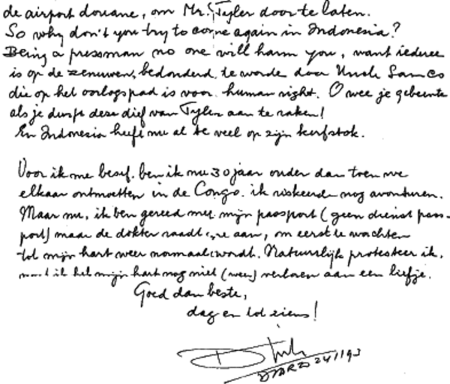 de airport douane, om Mr. Tyler door te laten.
So why don't you try to come again in Indonesia?
Being a pressman no one will harm you, want iedere
is op de zenuwen, bedonderd te worde door Uncle Sam & Co
die op het oorlogspad is voor human right. O wee je gebeente
als je durft deze dief van Tyler aan te raken!
En Indonesia heeft nu al te veel op zijn kerfstok.
Voor ik me besef, ben ik nu 30 jaar ouder dan toen we
elkaar ontmoetten in de Congo. ik riskeerde nog avonturen.
Maar nu, ik ben gereed met mijn paspoort (geen dienst pas-
port) maar de dokter raadt me aan, om eerst te wachten
tot mijn hart weer normaal wordt. Natuurlijk protesteer ik,
want ik heb mijn hart nog niet (weer) verloren aan een liefje.
Goed dan beste,
dag en tot ziens!
24/1 93